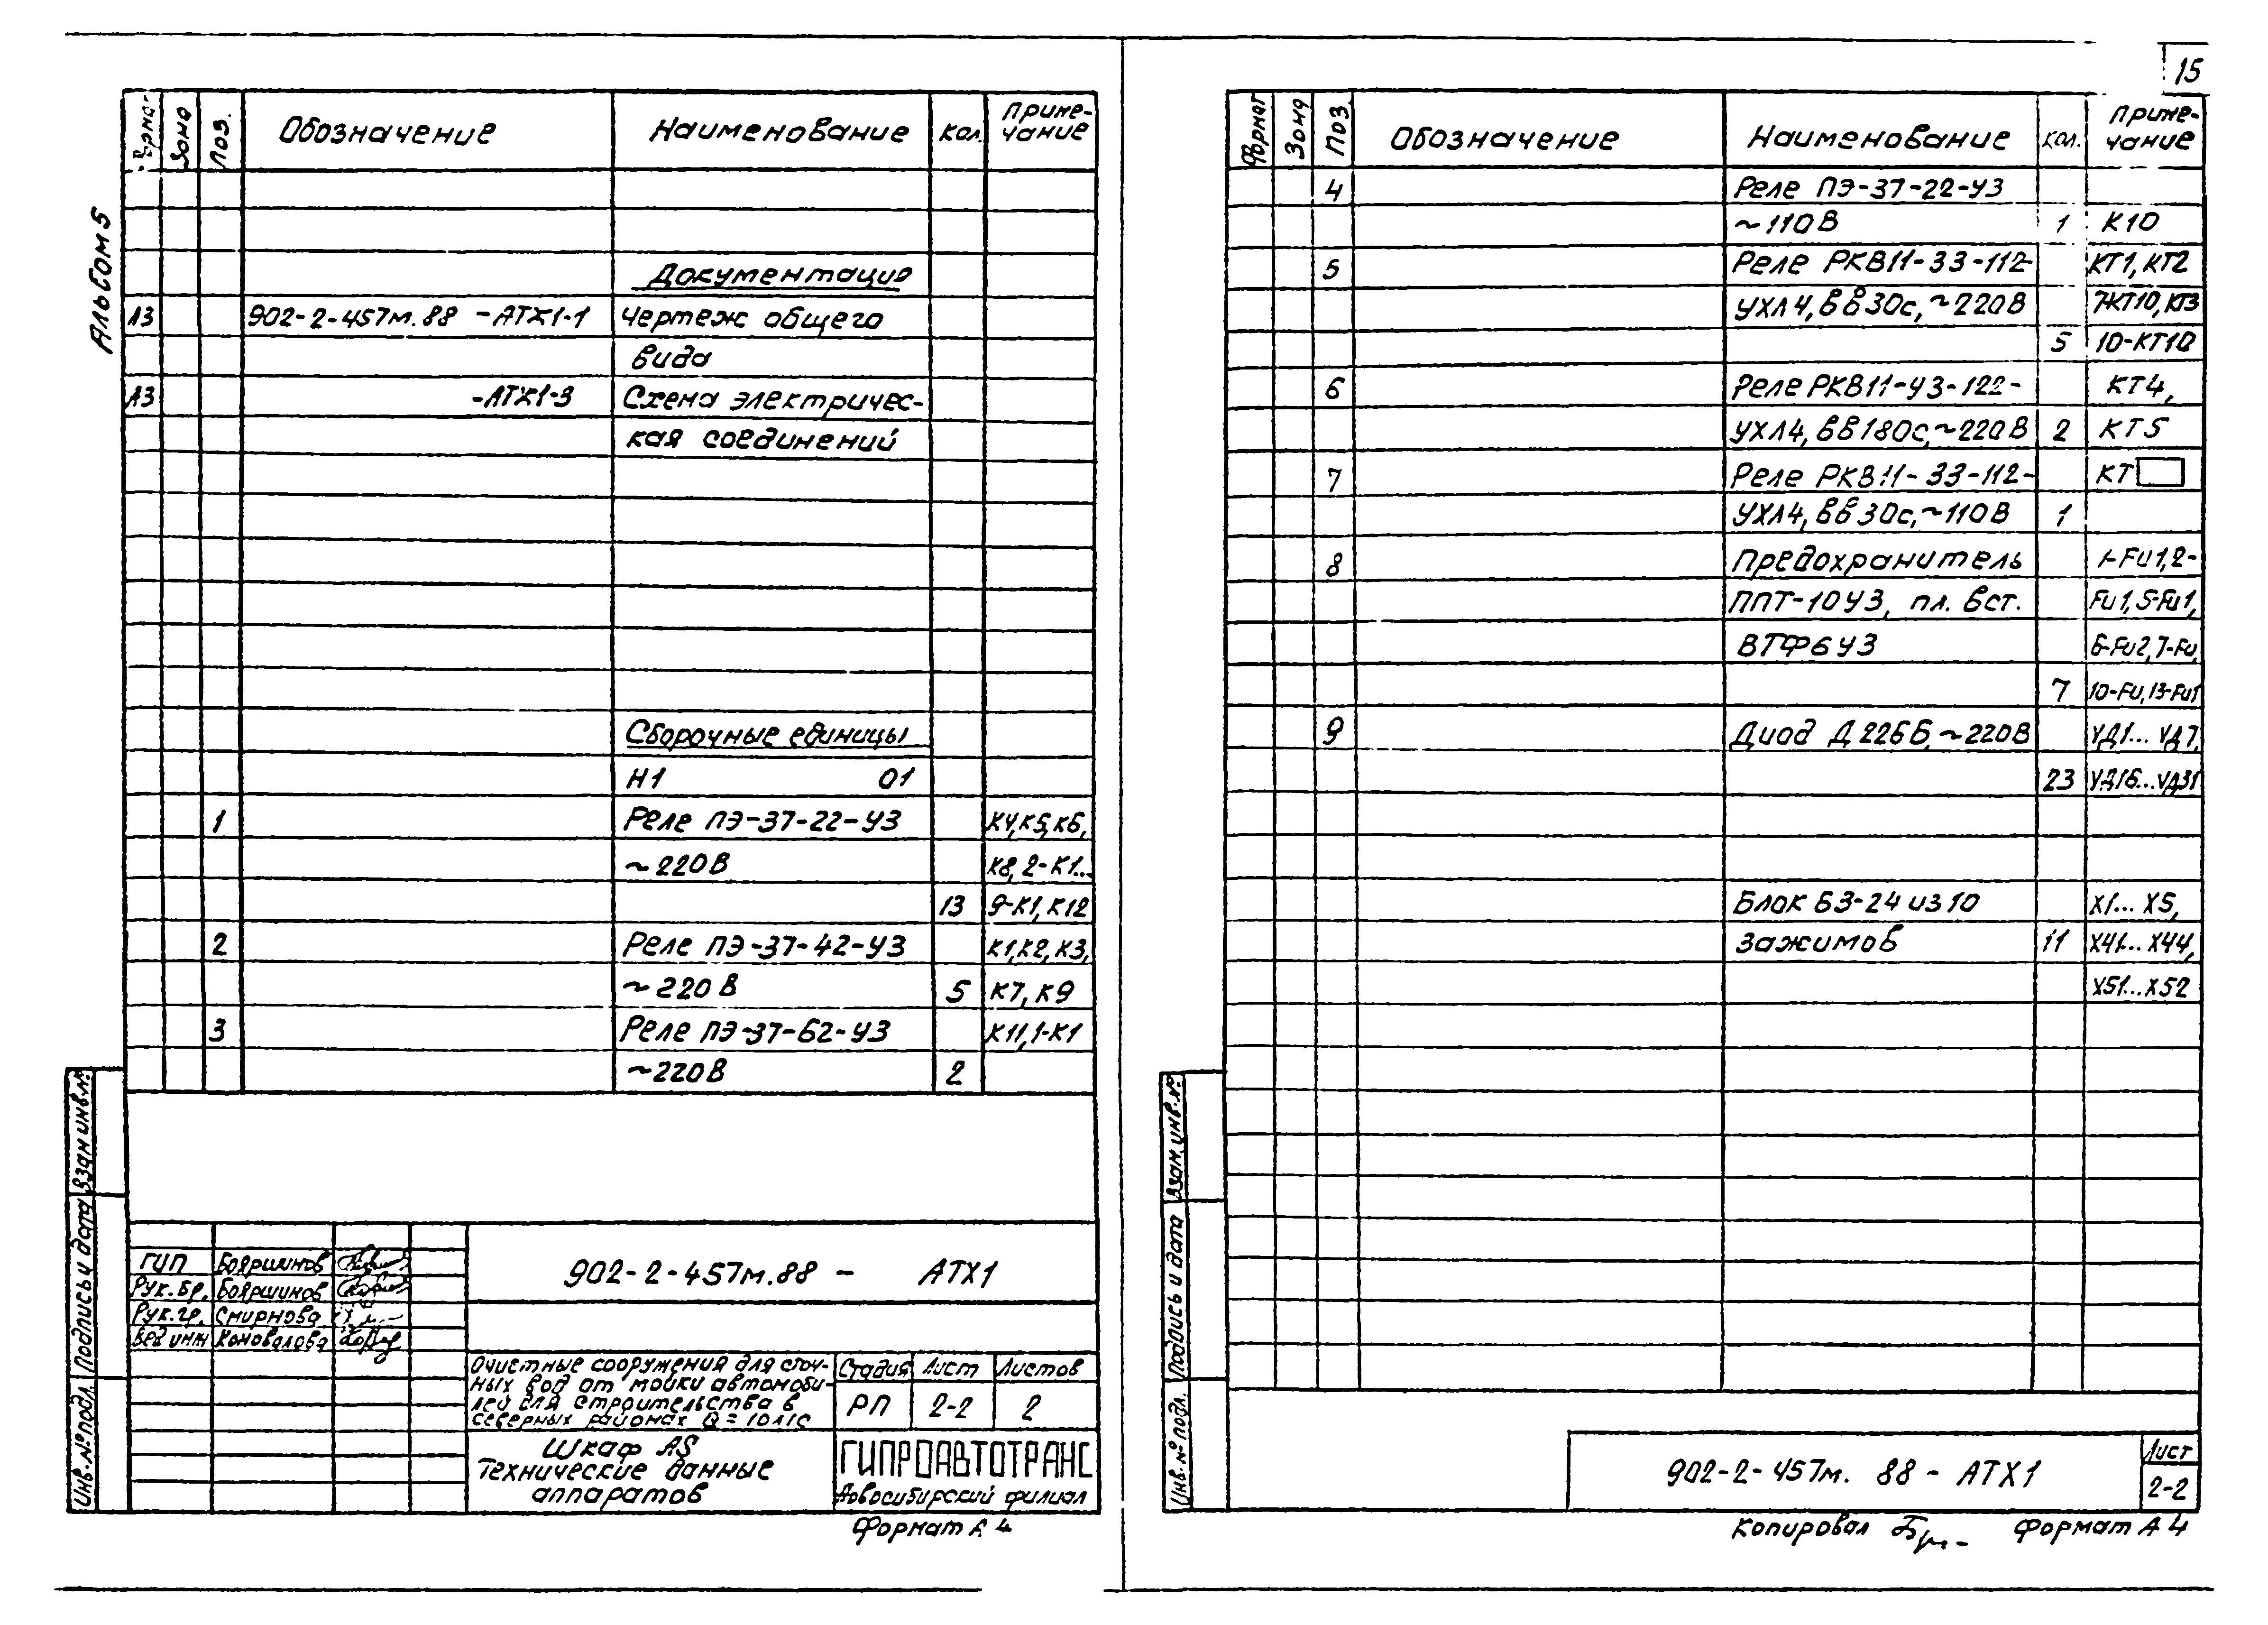 15
Альбом 5
Формат Зона Поз. Обозначение Наименование Кол. Приме-
чание
Документация
А3 902-2-457м.88 -АТХ1-1 Чертеж общего
вида
А3 -АТХ1-3 Схема электричес-
кая соединений
Сборочные единицы
Н1 01
1 Реле ПЭ-37-22-У3 К4,К5,К6,
~220В К8, 2-К1...
13 9-К1, К12
2 Реле ПЭ-37-42-У3 К1,К2,К3,
~220В 5 К7, К9
3 Реле ПЭ-37-62-У3 К11,1-К1
~220В 2
Взам инв.№
Подпись и дата
Инв.№ подл.
ГИП Бояршинов
Рук.бр. Бояршинов
Рук.гр. Смирнова
Вед инж Коновалова
902-2-457м.88 - АТХ1
Очистные сооружения для сточ-
ных вод от мойки автомоби-
лей для строительства в
северных районах Q = 10л/с
Стадия Лист Листов
РП 2-2 2
Шкаф АS
Технические данные
аппаратов
ГИПРОАВТОТРАНС
Новосибирский филиал
Формат А4
Формат Зона Поз. Обозначение Наименование Кол. Приме-
чание
4 Реле ПЭ-37-22-У3
~110В 1 К10
5 Реле РКВ11-33-112- КТ1, КТ2
УХЛ4, вв30с, ~220В 7КТ10, КТ3
5 10-КТ10
6 Реле РКВ11-У3-122- КТ4,
УХЛ4, вв180с, ~220В 2 КТ5
7 Реле РКВ11-33-112- КТ
УХЛ4, вв30с, ~110В 1
8 Предохранитель 1-FU1, 2-
ППТ-10У3, пл. вст. FU1, 5-FU1,
ВТФ6У3 6-FU2, 7-FU,
7 10-FU, 13-FU1
9 Диод Д226Б, ~220В УД1... УД7,
23 УД16...УД31
Блок БЗ-24 из 10 Х1... Х5,
зажимов 11 Х41... Х44,
Х51... Х52
Взам.инв.№
Подпись и дата
Инв.№ подл.
902-2-457м. 88 - АТХ1
Лист
2-2
Копировал Формат А4